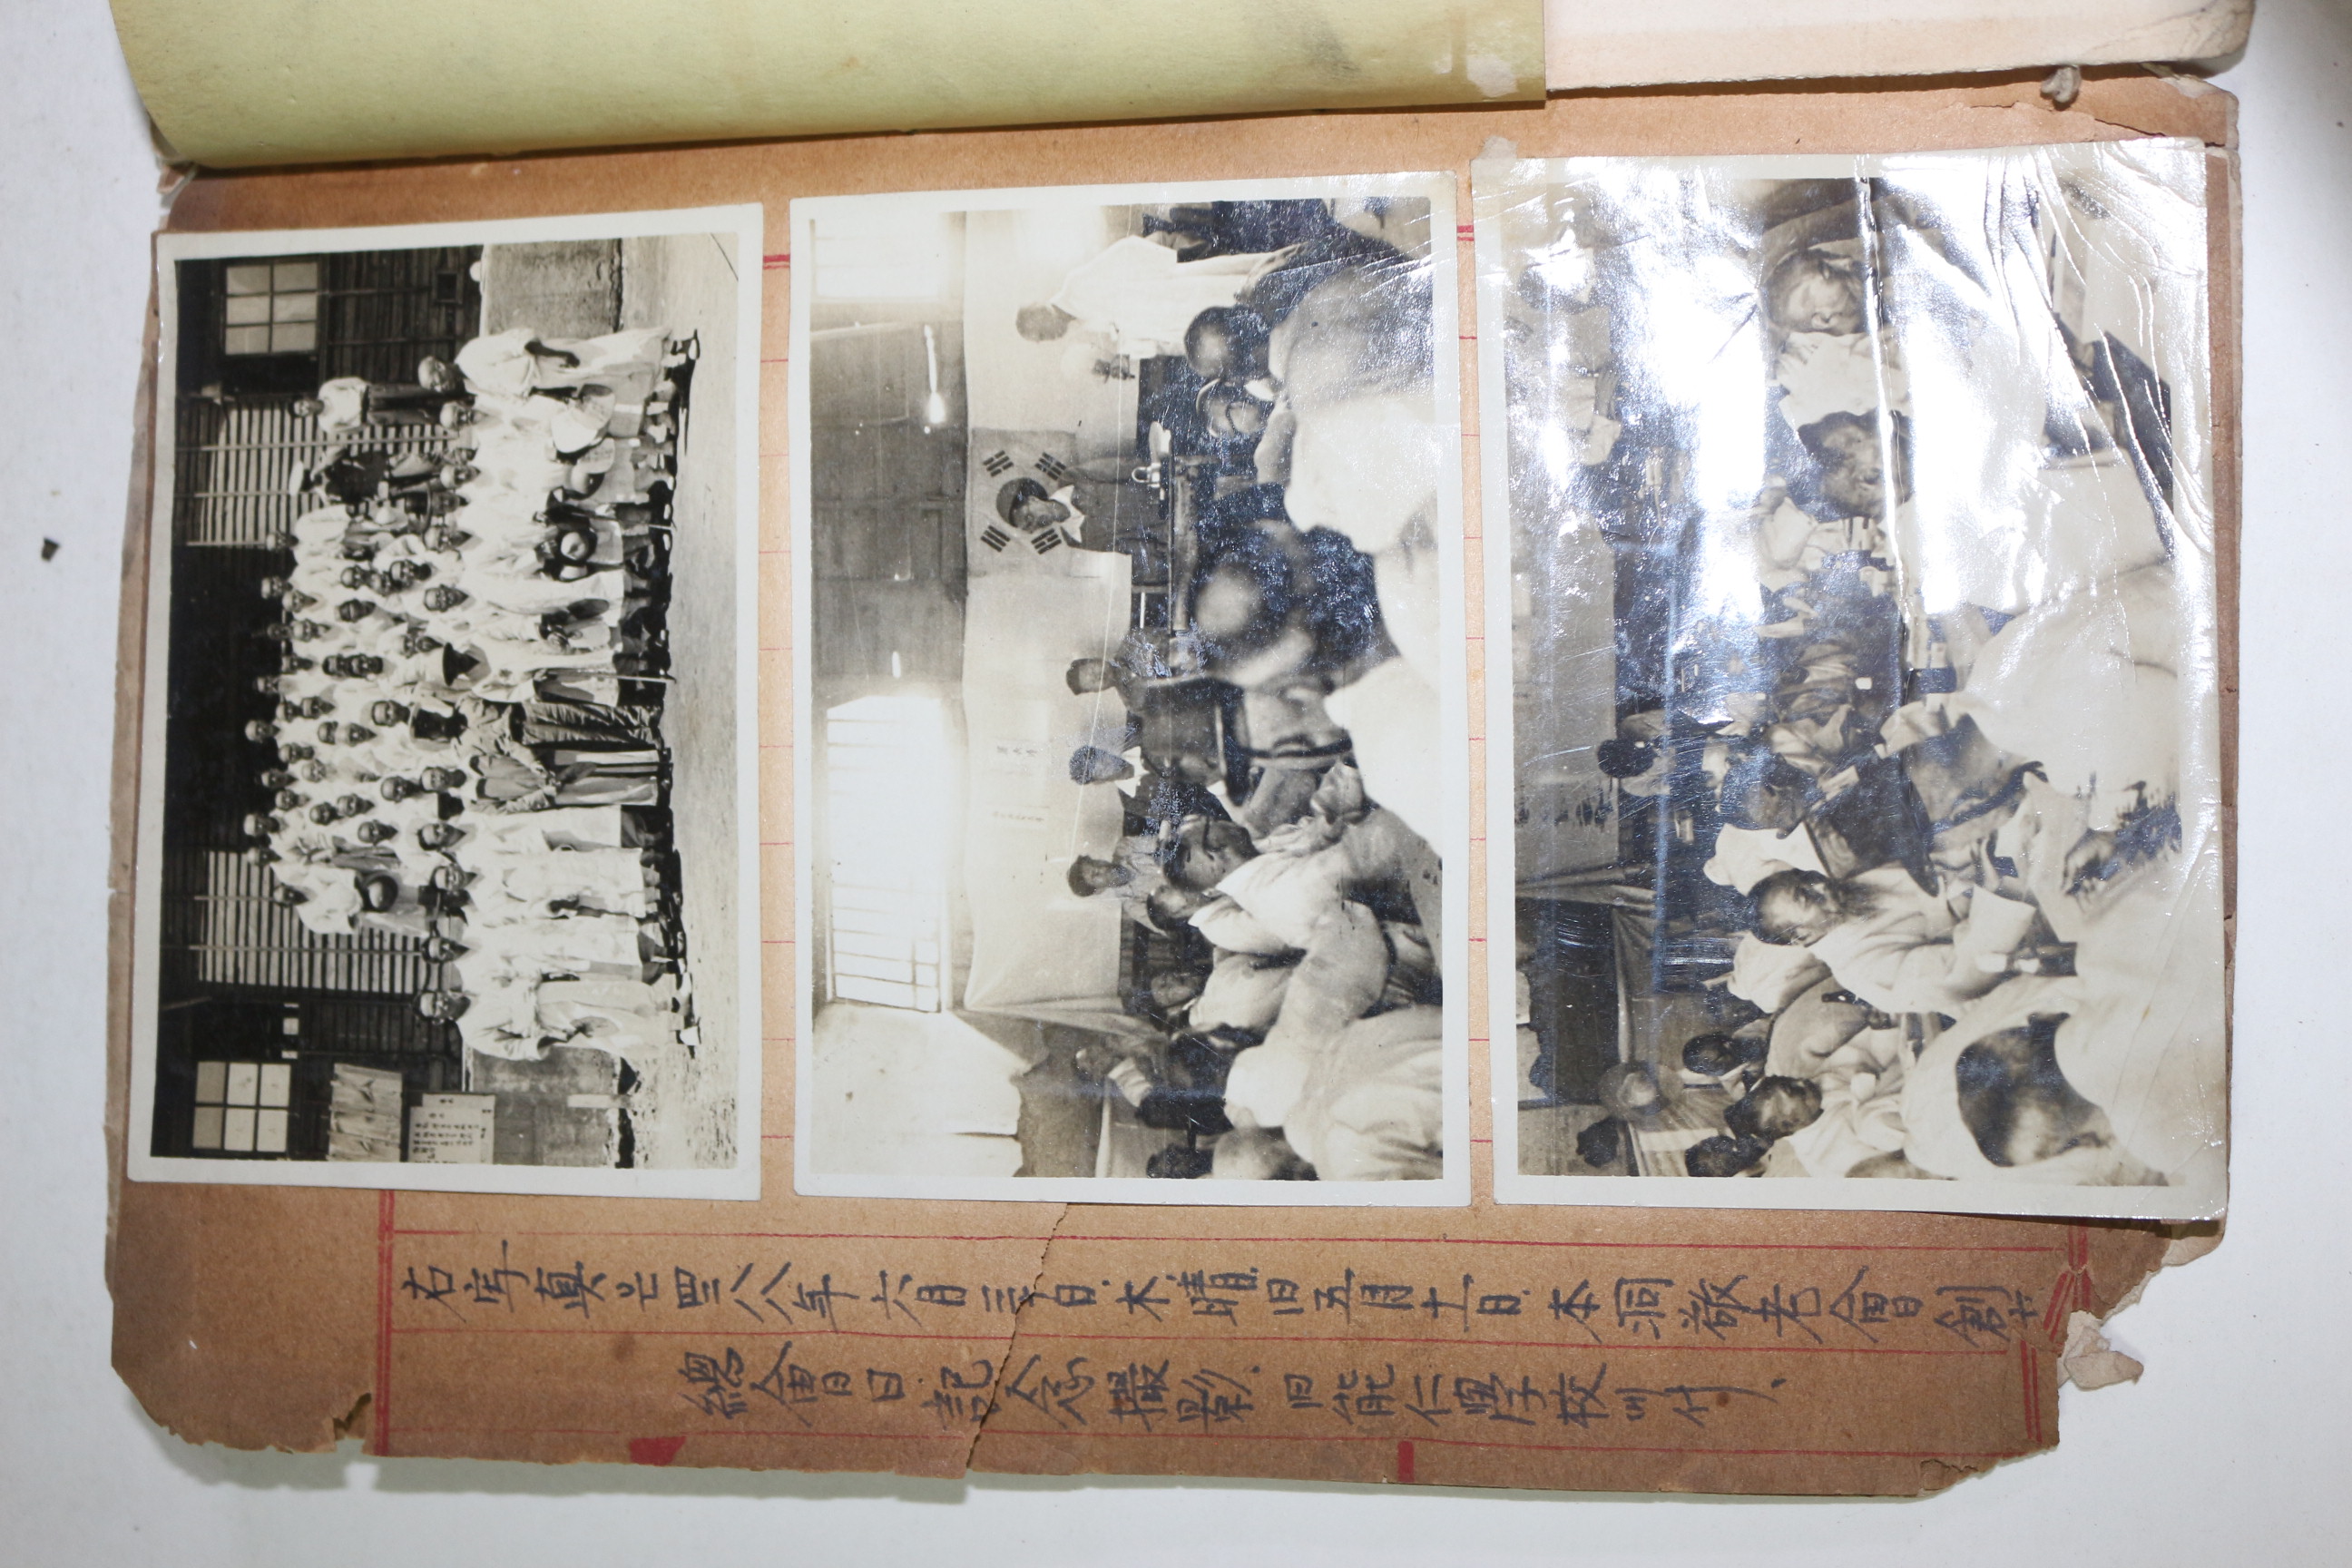 右写真은 四八八年六月三十日.木.晴.旧五月十一日.本洞敬老會創立
總會日記念撮影.旧能仁學校에서.